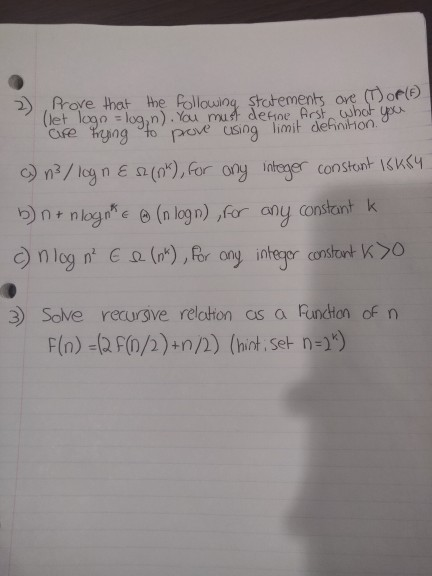 2) Prove that the following statements are (T) or (F)
(let logn = log₂n). You must define first, what you
are trying to prove using limit definition.
a) n³/log n ∈ Ω(nᵏ), for any integer constant 1≤k≤4
b) n + nlognᵏ ∈ Θ(nlogn), for any constant k
c) nlog n² ∈ Ω(nᵏ), for any integer constant k>0
3) Solve recursive relation as a Function of n
F(n) = (2F(n/2)+n/2) (hint; set n=2ᵏ)